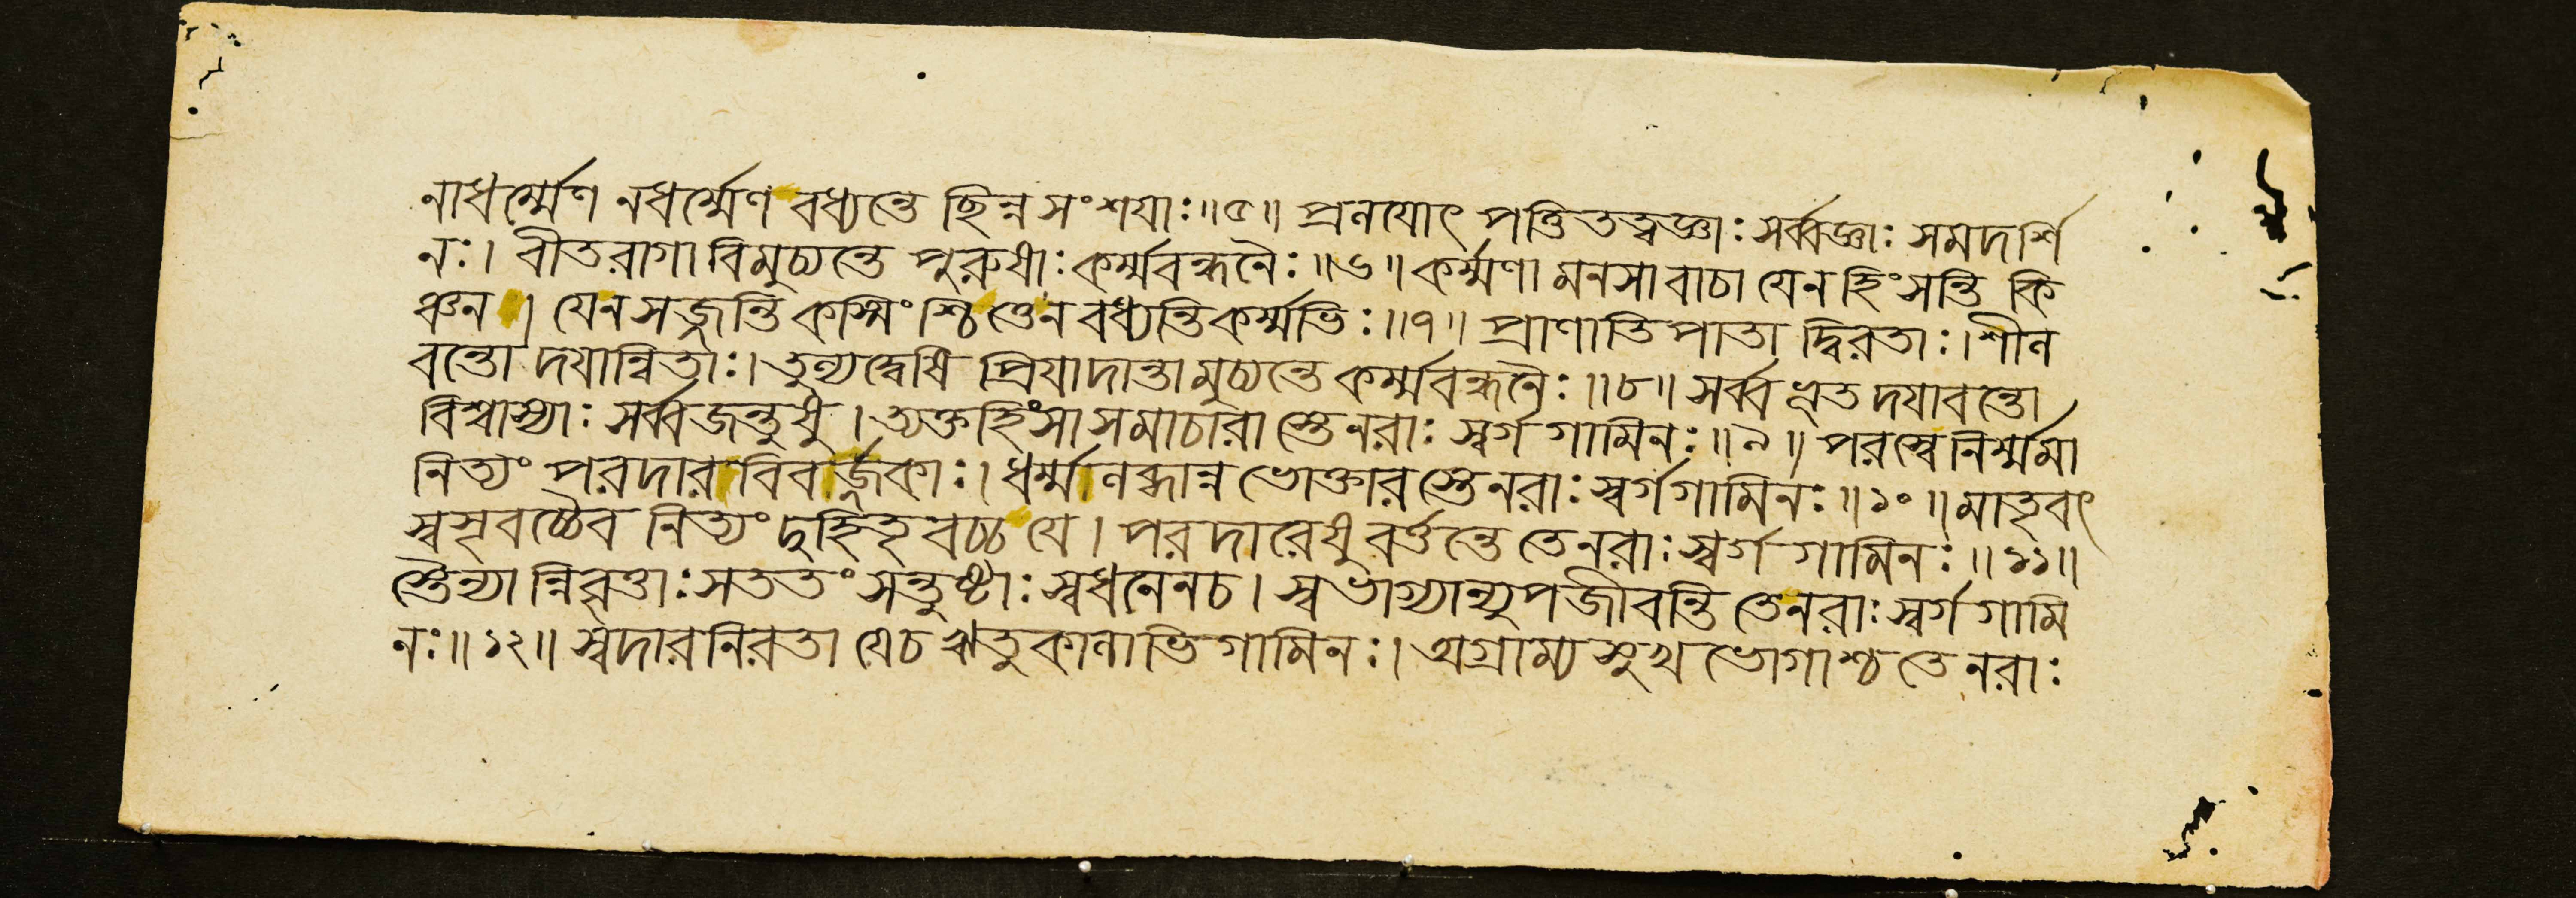 নাধর্ম্মেণ নধর্ম্মেণ বধ্যন্তে ছিন্ন সংশযাঃ॥৫॥ প্রনযোৎ পত্তিতত্বজ্ঞাঃ সর্ব্বজ্ঞাঃ সমদর্শি
নঃ। বীতরাগা বিমুচ্যন্তে পুরুষাঃ কর্ম্মবন্ধনৈঃ॥৬॥ কর্ম্মণা মনসা বাচা যেন হিংসন্তি কি
ঞ্চন। যেন সজ্জন্তি কস্মিংশ্চিত্তেন বধ্যন্তি কর্ম্মভিঃ॥৭॥ প্রাণাতিপাতা দ্বিরতাঃ। শীন
বন্তো দযান্বিতাঃ। তুন্যদ্বেষি প্রিযাদান্তা মুচ্যন্তে কর্ম্মবন্ধনৈঃ॥৮॥ সর্ব্বভূত দযাবন্তো
বিশ্বাস্যাঃ সর্ব্বজন্তুষু। ত্যক্তহিংসা সমাচারা স্তেনরাঃ স্বর্গ গামিনঃ॥৯॥ পরস্বে নির্ম্মমা
নিত্যং পরদার বিবর্জ্জকাঃ। ধর্ম্মানব্ধান্ন ভোক্তার স্তেনরাঃ স্বর্গগামিনঃ॥১০॥ মাতৃবৎ
স্বসৃবচ্চৈব নিত্যং দুহিতৃবচ্চ যে। পরদারেষু বর্ত্তন্তে তেনরাঃ স্বর্গ গামিনঃ॥১১॥
স্তৈন্যান্নিবৃত্তাঃ সততং সন্তুষ্টাঃ স্বধনেনচ। স্বভাগ্যান্যুপজীবন্তি তেনরাঃ স্বর্গ গামি
নঃ॥১২॥ স্বদারনিরতা যেচ ঋতুকানাভিগামিনঃ। অগ্রাম্য সুখ ভোগাশ্চ তেনরাঃ